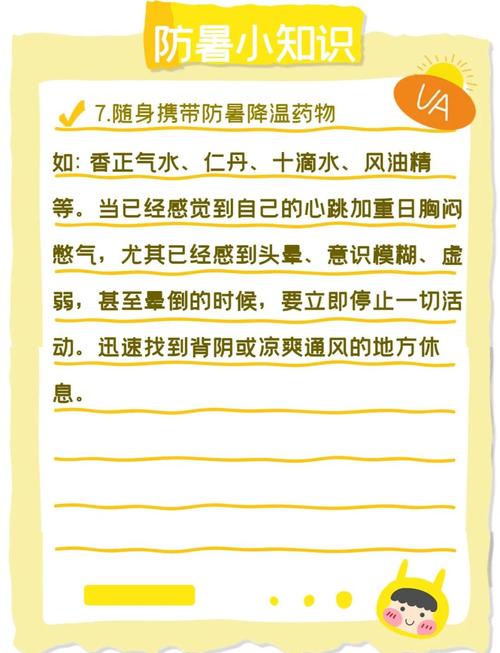 防暑小知识
UA
7.随身携带防暑降温药物
如: 香正气水、仁丹、十滴水、风油精
等。当已经感觉到自己的心跳加重日胸闷
憋气，尤其已经感到头晕、意识模糊、虚
弱，甚至晕倒的时候，要立即停止一切活
动。迅速找到背阴或凉爽通风的地方休
息。